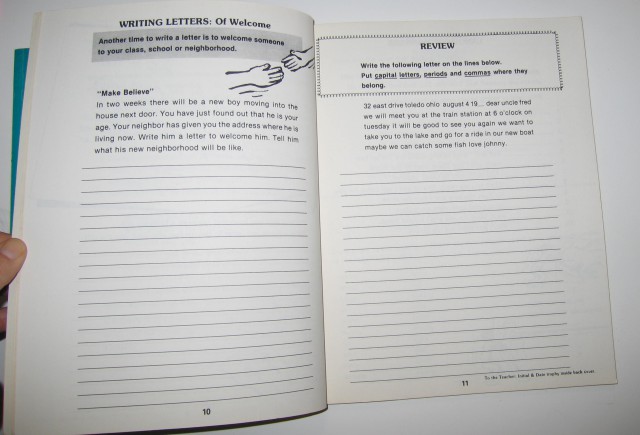 WRITING LETTERS: Of Welcome
Another time to write a letter is to welcome someone
to your class, school or neighborhood.
"Make Believe"
In two weeks there will be a new boy moving into the
house next door. You have just found out that he is your
age. Your neighbor has given you the address where he is
living now. Write him a letter to welcome him. Tell him
what his new neighborhood will be like.
10
REVIEW
Write the following letter on the lines below.
Put capital letters, periods and commas where they
belong.
32 east drive toledo ohio august 4 19... dear uncle fred
we will meet you at the train station at 6 o'clock on
tuesday it will be good to see you again we want to
take you to the lake and go for a ride in our new boat
maybe we can catch some fish love johnny.
11
To the Teacher: Initial & Date trophy inside back cover.